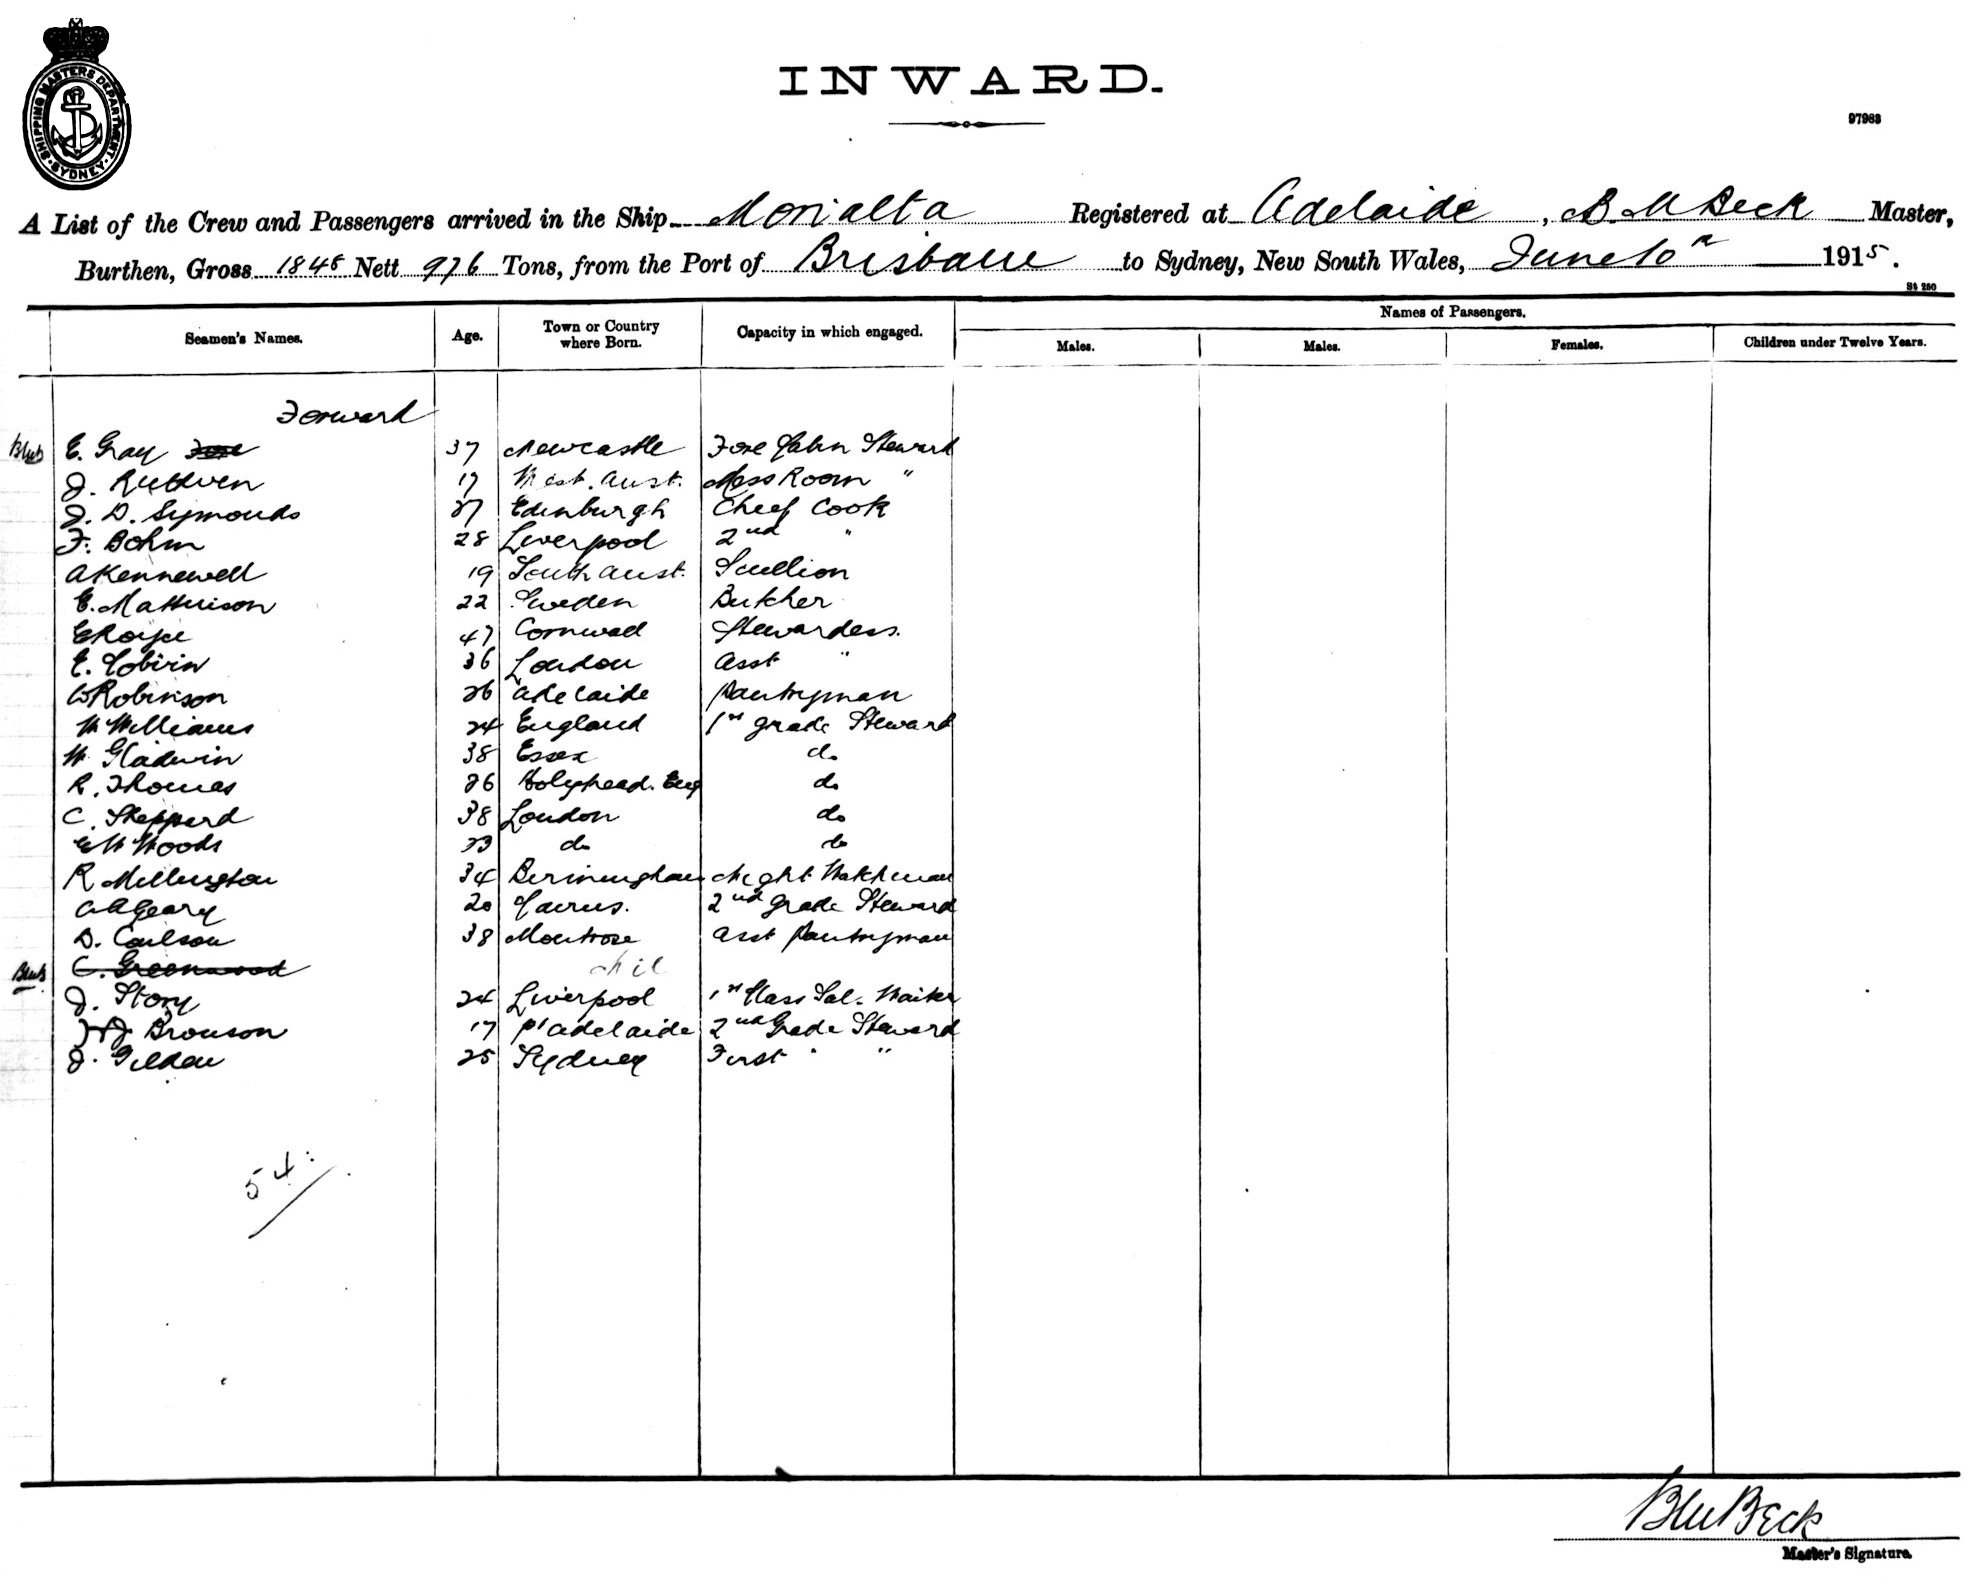 SHIPPING MASTERS DEPARTMENT
SYDNEY
INWARD.
97983
A List of the Crew and Passengers arrived in the Ship Morialta Registered at Adelaide, B M Beck Master,
Burthen, Gross 1848 Nett 976 Tons, from the Port of Brisbane to Sydney, New South Wales, June 10th 1915.
St 250
Names of Passengers.
Seamen's Names. Age. Town or Country where Born. Capacity in which engaged. Males. Males. Females. Children under Twelve Years.
Forward
E. Gray 37 Newcastle Fore Cabin Steward
J. Ruthven 17 West. Aust. Mess Room "
J. D. Symonds 27 Edinburgh Chief Cook
F. Bohm 28 Liverpool 2nd "
A Kennewell 19 South Aust. Scullion
E. Mathison 22 Sweden Butcher
E Royce 47 Cornwall Stewardess.
E. 36 London Asst "
W Robinson 26 Adelaide Pantryman
W Williams 24 England 1st grade Steward
W. Gladwin 38 Essex do
R. Thomas 26 Holyhead. Eng do
C. Sheppard 38 London do
E W Woods 23 do do
R Millington 34 Birmingham Night Watchman
A A Geary 20 Cairns. 2nd grade Steward
D. Carlson 38 Montrose Asst Pantryman
C. Greenwood Nil
J. Story 24 Liverpool 1st Class Sal. Waiter
Bronson 17 Pt Adelaide 2nd Grade Steward
J. Gilden 25 Sydney First " "
54
B M Beck
Master's Signature.